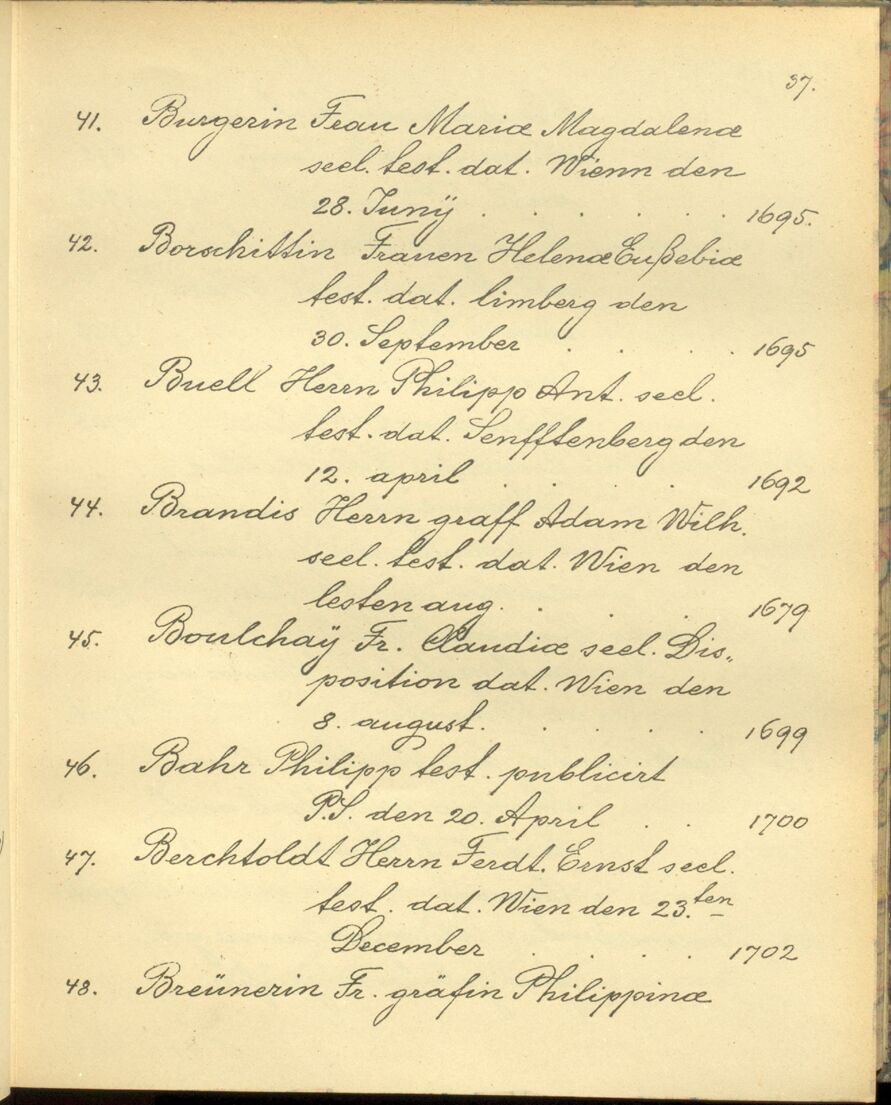 37.
41. Burgerin Frau Mariæ Magdalenæ
seel. test. dat. Wienn den
28. Junÿ . . . . . . 1695.
42. Borschittin Frauen Helenæ Eußebiæ
test. dat. limberg den
30. September . . . . 1695
43. Buell Herrn Philipp Ant. seel.
test. dat. Senfftenberg den
12. april . . . . 1692
44. Brandis Herrn graff Adam Wilh.
seel. test. dat. Wien den
lesten aug. . . . . 1679
45. Boulchaÿ Fr. Claudiæ seel. Dis„
position dat. Wien den
8. august. . . . . . 1699
46. Bahr Philipp test. publicirt
P.S. den 20. April . . 1700
47. Berchtoldt Herrn Ferdt. Ernst seel.
test. dat. Wien den 23.ten
December . . . . 1702
48. Breünerin Fr. gräfin Philippinæ